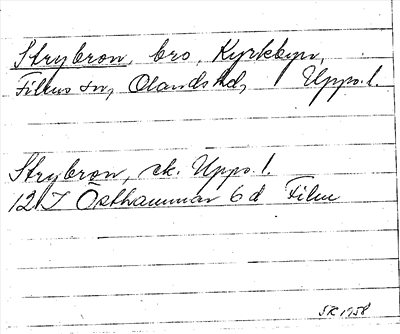 Strybron, bro, Kyrkbyn,
Films sn, Olands hd, Upps. l.
Strybron, ek. Upps. l.
12I7 Östhammar 6d Film
SR 1958